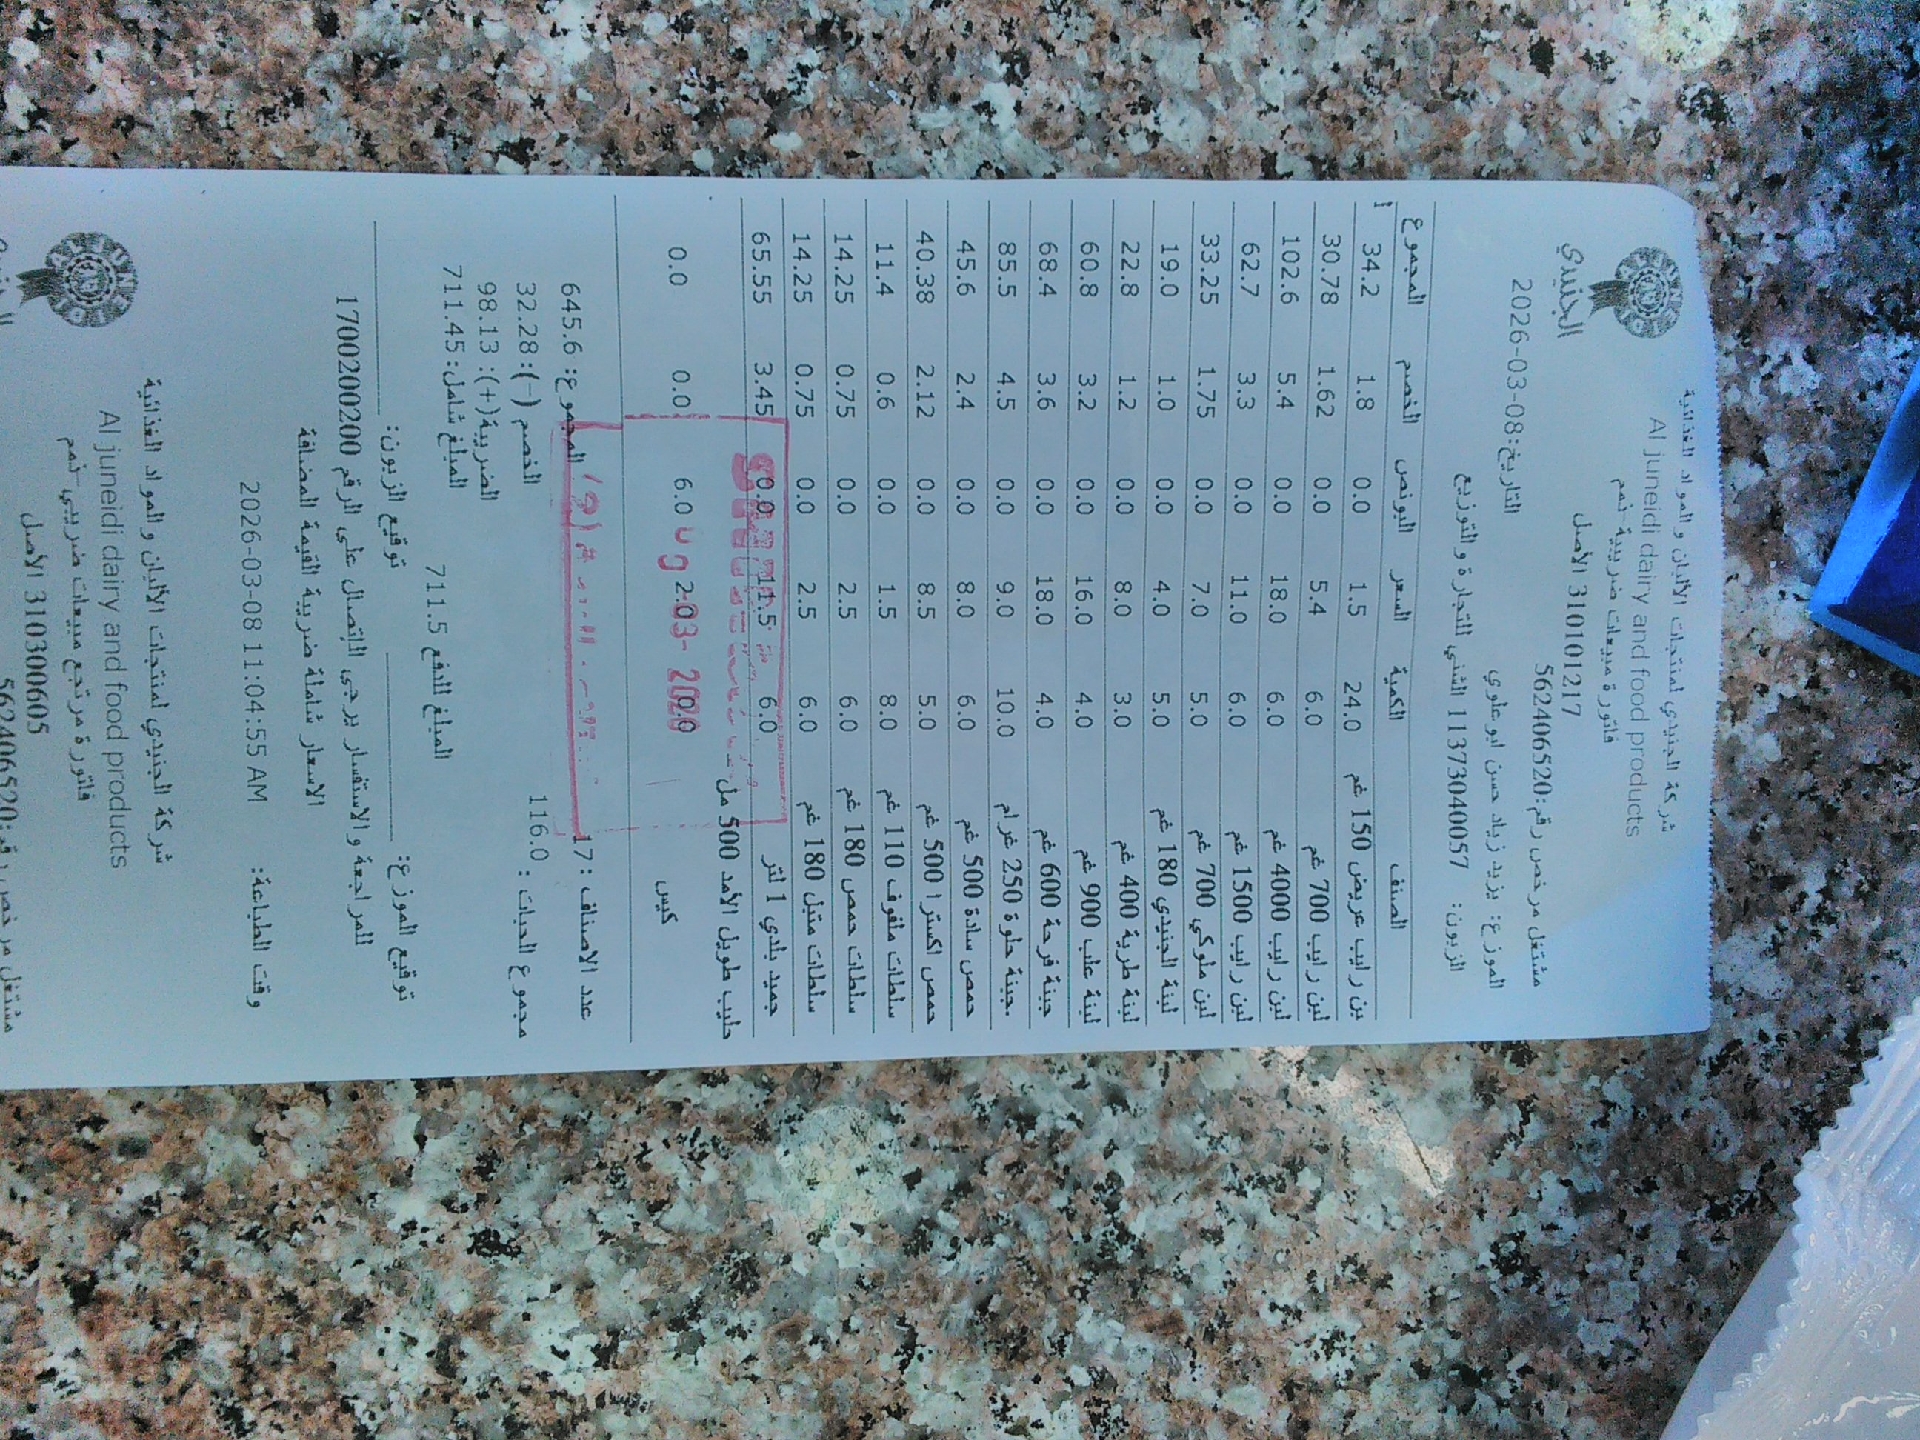 شركة الجنيدي لمنتجات الألبان والمواد الغذائية
Al juneidi dairy and food products
فاتورة مبيعات ضريبية تمم
310101217 الأصل
الجنيدي
مشتغل مرخص رقم:562406520
التاريخ:2026-03-08
الموزع: يزيد زياد حسن ابو علوي
الزبون: 11373040057 الشني للتجارة والتوزيع
الصنف الكمية السعر البونص الخصم المجموع
لبن رايب عريض 150 غم 24.0 1.5 0.0 1.8 34.2
لبن رايب 700 غم 6.0 5.4 0.0 1.62 30.78
لبن رايب 4000 غم 6.0 18.0 0.0 5.4 102.6
لبن رايب 1500 غم 6.0 11.0 0.0 3.3 62.7
لبن ملوكي 700 غم 5.0 7.0 0.0 1.75 33.25
لبنة الجنيدي 180 غم 5.0 4.0 0.0 1.0 19.0
لبنة طرية 400 غم 3.0 8.0 0.0 1.2 22.8
لبنة علب 900 غم 4.0 16.0 0.0 3.2 60.8
جبنة فرحة 600 غم 4.0 18.0 0.0 3.6 68.4
جبنة حلوة 250 غرام 10.0 9.0 0.0 4.5 85.5
حمص سادة 500 غم 6.0 8.0 0.0 2.4 45.6
حمص اكسترا 500 غم 5.0 8.5 0.0 2.12 40.38
سلطات ملفوف 110 غم 8.0 1.5 0.0 0.6 11.4
سلطات حمص 180 غم 6.0 2.5 0.0 0.75 14.25
سلطات متبل 180 غم 6.0 2.5 0.0 0.75 14.25
جميد بلدي 1 لتر 6.0 11.5 0.0 3.45 65.55
حليب طويل الأمد 500 مل
كيس 0.0 2.0 6.0 0.0 0.0
عدد الاصناف : 17 المجموع: 645.6
مجموع الحبات : 116.0 الخصم (-): 32.28
الضريبة(+): 98.13
المبلغ شامل: 711.45
المبلغ للدفع 711.5
توقيع الموزع: توقيع الزبون:
للمراجعة والاستفسار يرجى الإتصال على الرقم 1700200200
الاسعار شاملة ضريبة القيمة المضافة
وقت الطباعة: 2026-03-08 11:04:55 AM
شركة الجنيدي لمنتجات الألبان والمواد الغذائية
Al juneidi dairy and food products
فاتورة مرتجع مبيعات ضريبي تمم
310300605 الأصل
مشتغل مرخص رقم:562406520